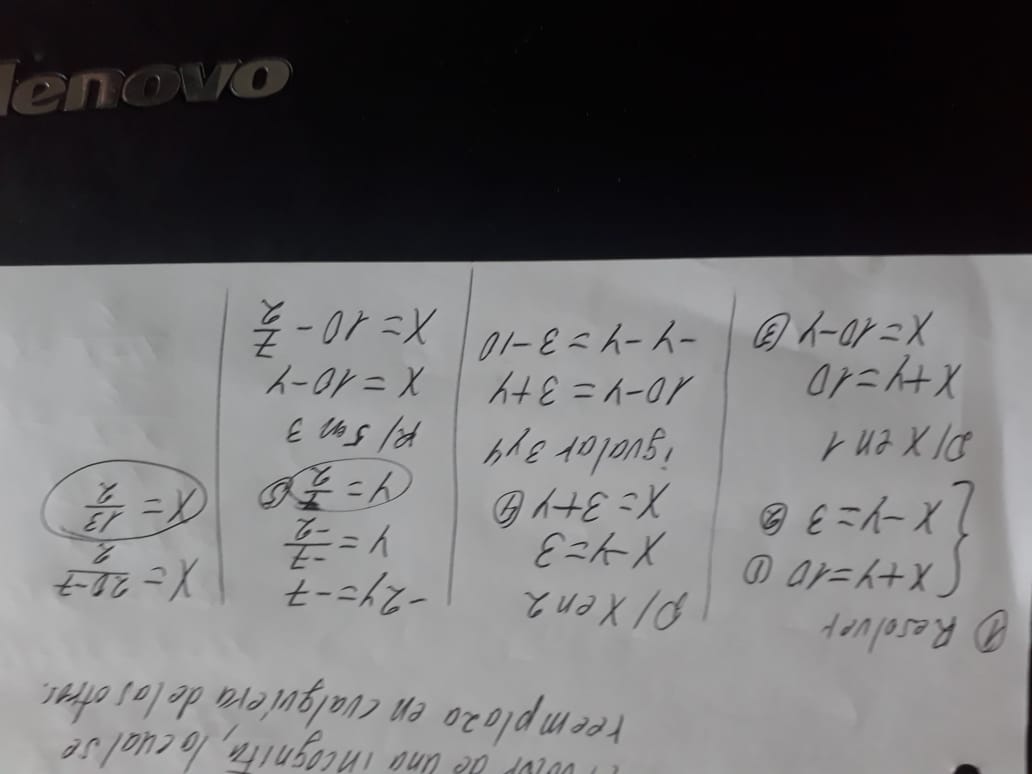 lenovo
valor de una incognita, lo cual se
reemplaza en cualquiera de las otras.
① Resolver
x+y=10 ①
x-y=3 ②
D/ x en 1
x+y=10
x=10-y ③
D/ x en 2
x-y=3
x=3+y ④
igualar 3 y 4
10-y=3+y
-y-y=3-10
-2y=-7
y=-7/-2
y=7/2 ⑤
R/ 5 en 3
x=10-y
x=10-7/2
x=20-7/2
x=13/2